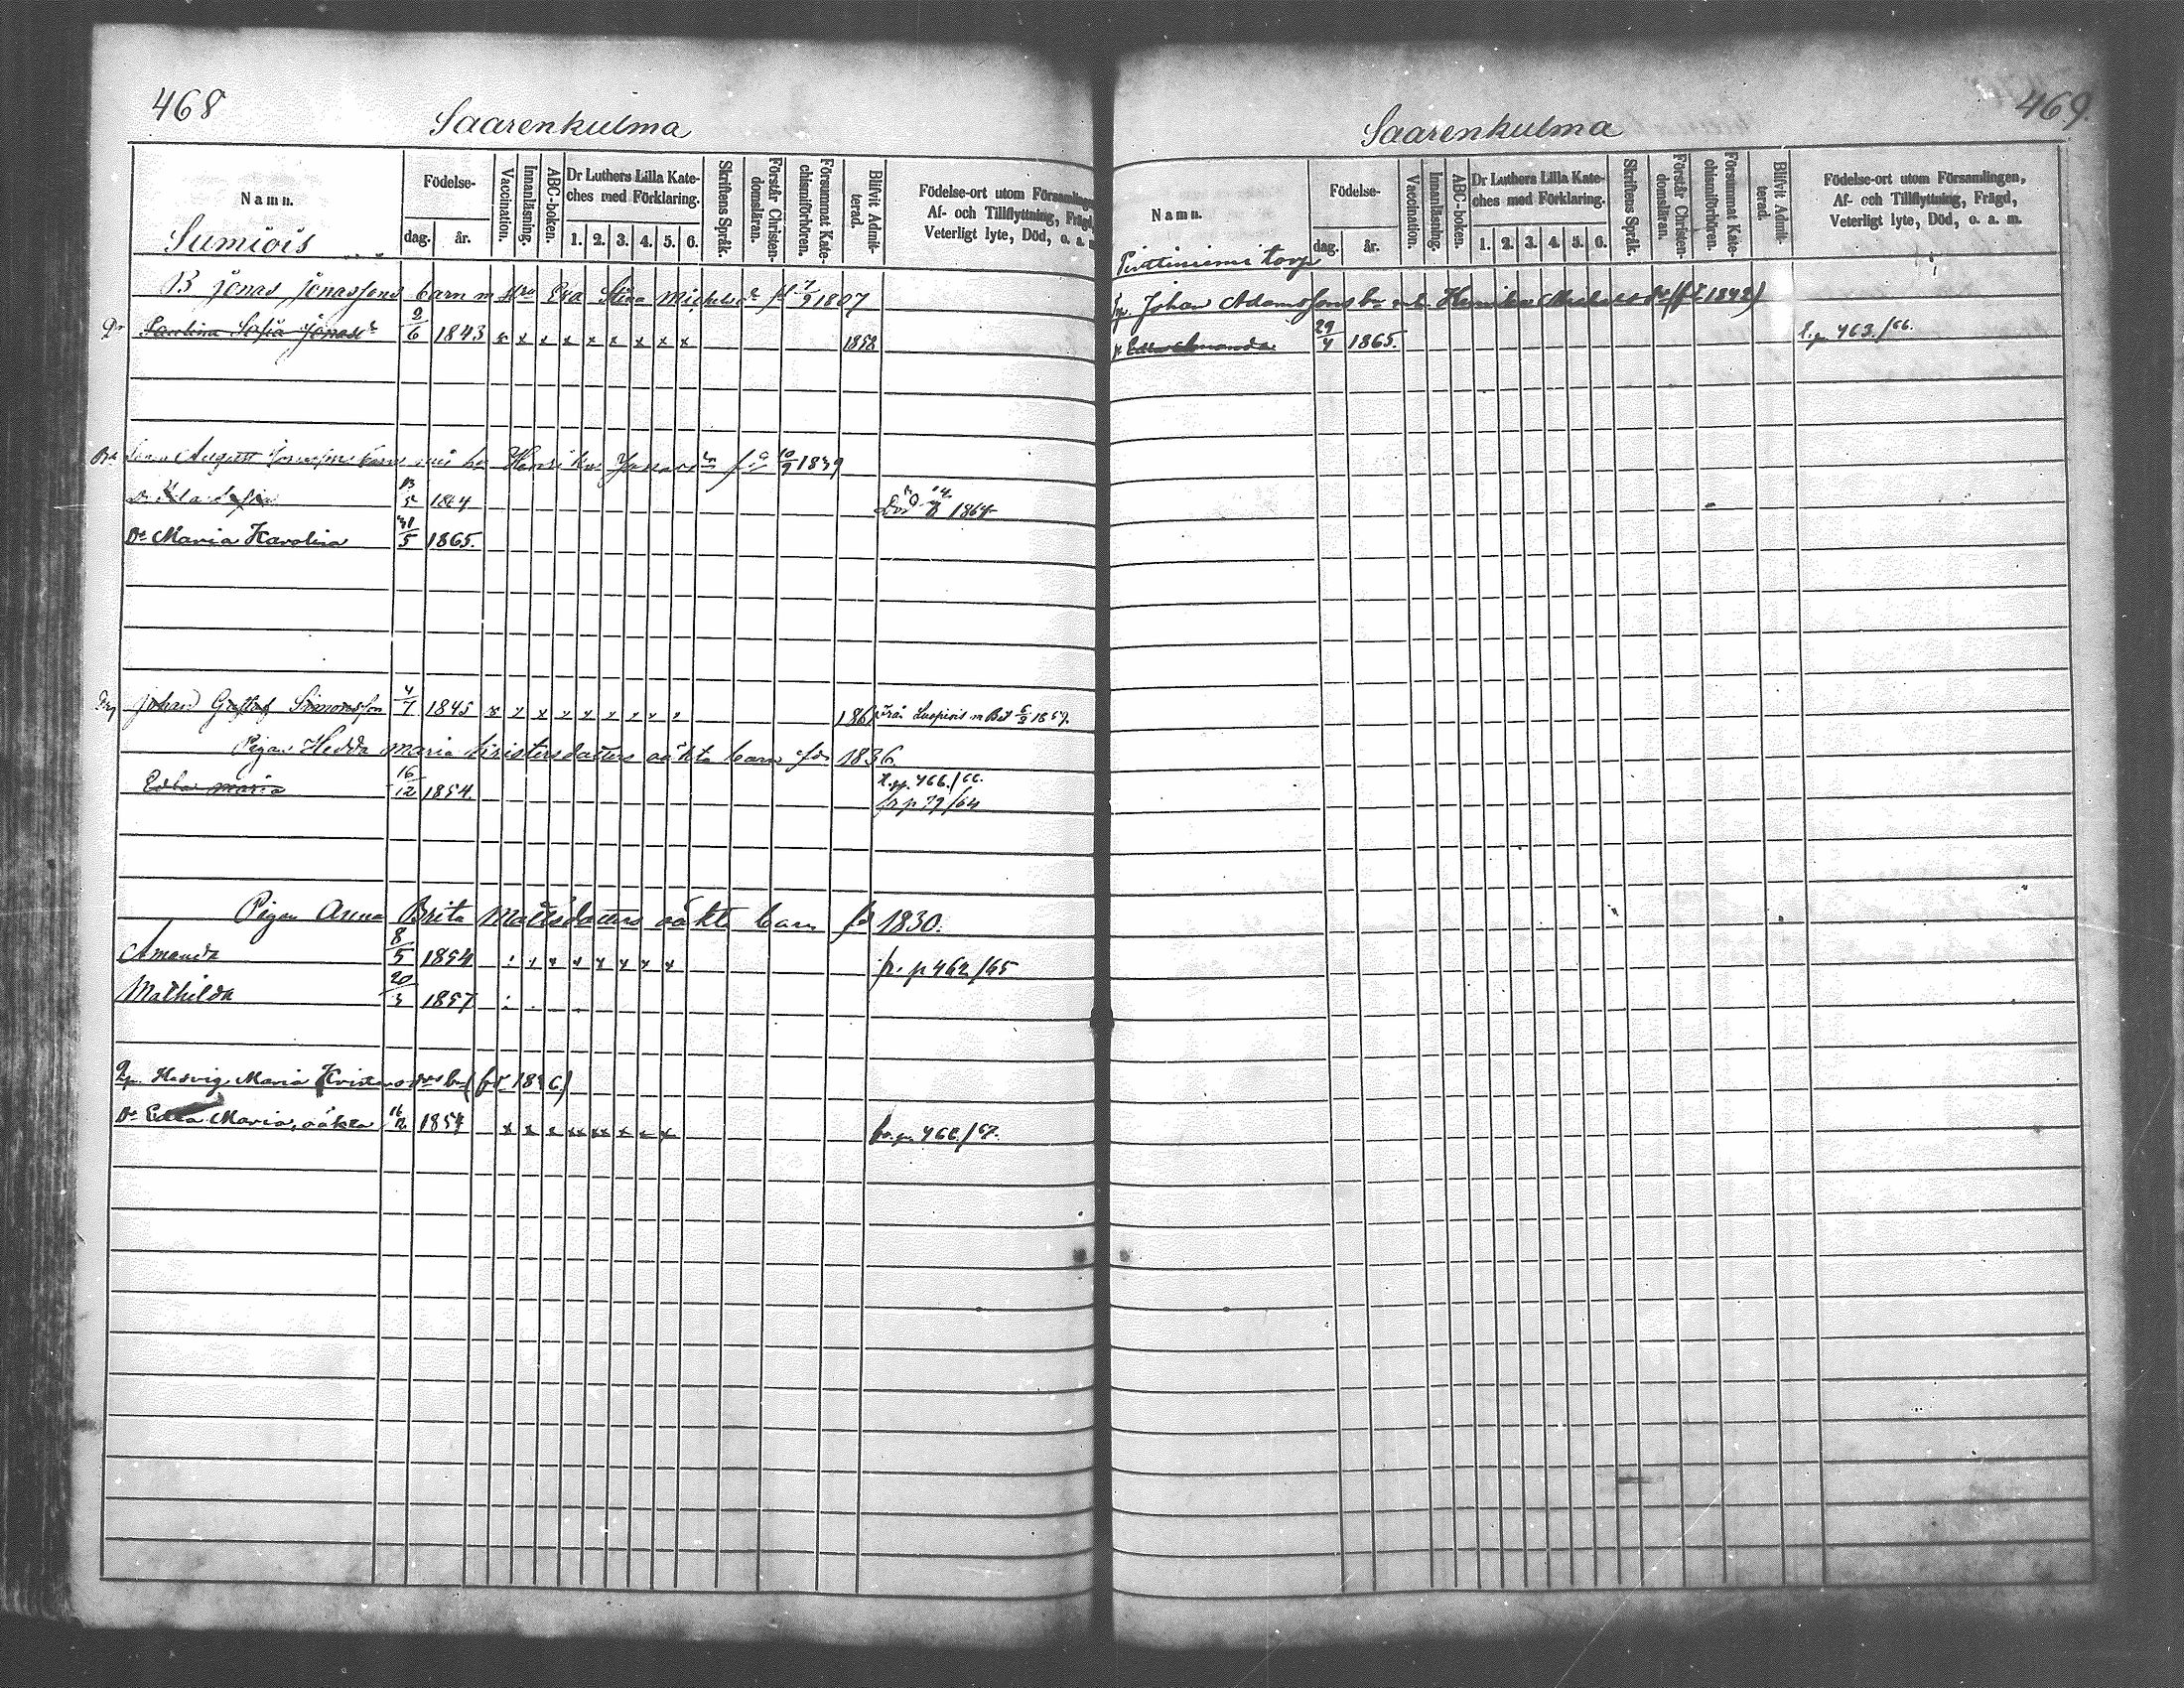 468
Saarenkulma
Namn.
Födelse-
dag.
år.
Vaccination.
Innanläsning.
ABC-boken.
Dr Luthers Lilla Kate-
ches med Förklaring.
1. 2. 3. 4. 5. 6.
Skriftens Språk.
Förstår Christen-
domsläran.
Försummat Kate-
chismiförhören.
Blifvit Admit-
terad.
Födelse-ort utom Församlingen,
Af- och Tillflyttning, Frägd,
Veterligt lyte, Död, o. a. m.
Sumiois
B Jonas Jonassons barn m Hru Eva Stina Michelsdr fd 7/9 1807
Dr Paulina Sofia Jonasdr 2/6 1843 x x x x x x x x x 1858
August barn med hu Henrika 10/9 1839
Sofia 13/5 1864 Död 1864
Dr Maria Karolina 31/5 1865.
Johan Gustaf Simonsson 4/7 1845 x x x x x x x x x Från m Bet 1857.
Pigan Hedda Maria Kristersdatters oäkta barn fdr 1836.
Edla Maria 16/12 1854. t.p. 466./66.
fr p 79/64
Pigan Anna Brita Mattsdatters oäkta barn fd 1830.
Amanda 8/5 1854 fr. p 462/65
Mathilda 20/3 1857
Hedvig Maria
Dr Edla Maria, oäkta 16/12 1854 x x x xx xx x x x fr. p. 466./67.
469.
Saarenkulma
Namn.
Födelse-
dag.
år.
Vaccination.
Innanläsning.
ABC-boken.
Dr Luthers Lilla Kate-
ches med Förklaring.
1. 2. 3. 4. 5. 6.
Skriftens Språk.
Förstår Christen-
domsläran.
Försummat Kate-
chismiförhören.
Blifvit Admit-
terad.
Födelse-ort utom Församlingen,
Af- och Tillflyttning, Frägd,
Veterligt lyte, Död, o. a. m.
Perttiniemi torp
Johan Adamssons bn m h Henrika (fd 1842)
Dr Edla Amanda 29/4 1865. t.p. 463./66.